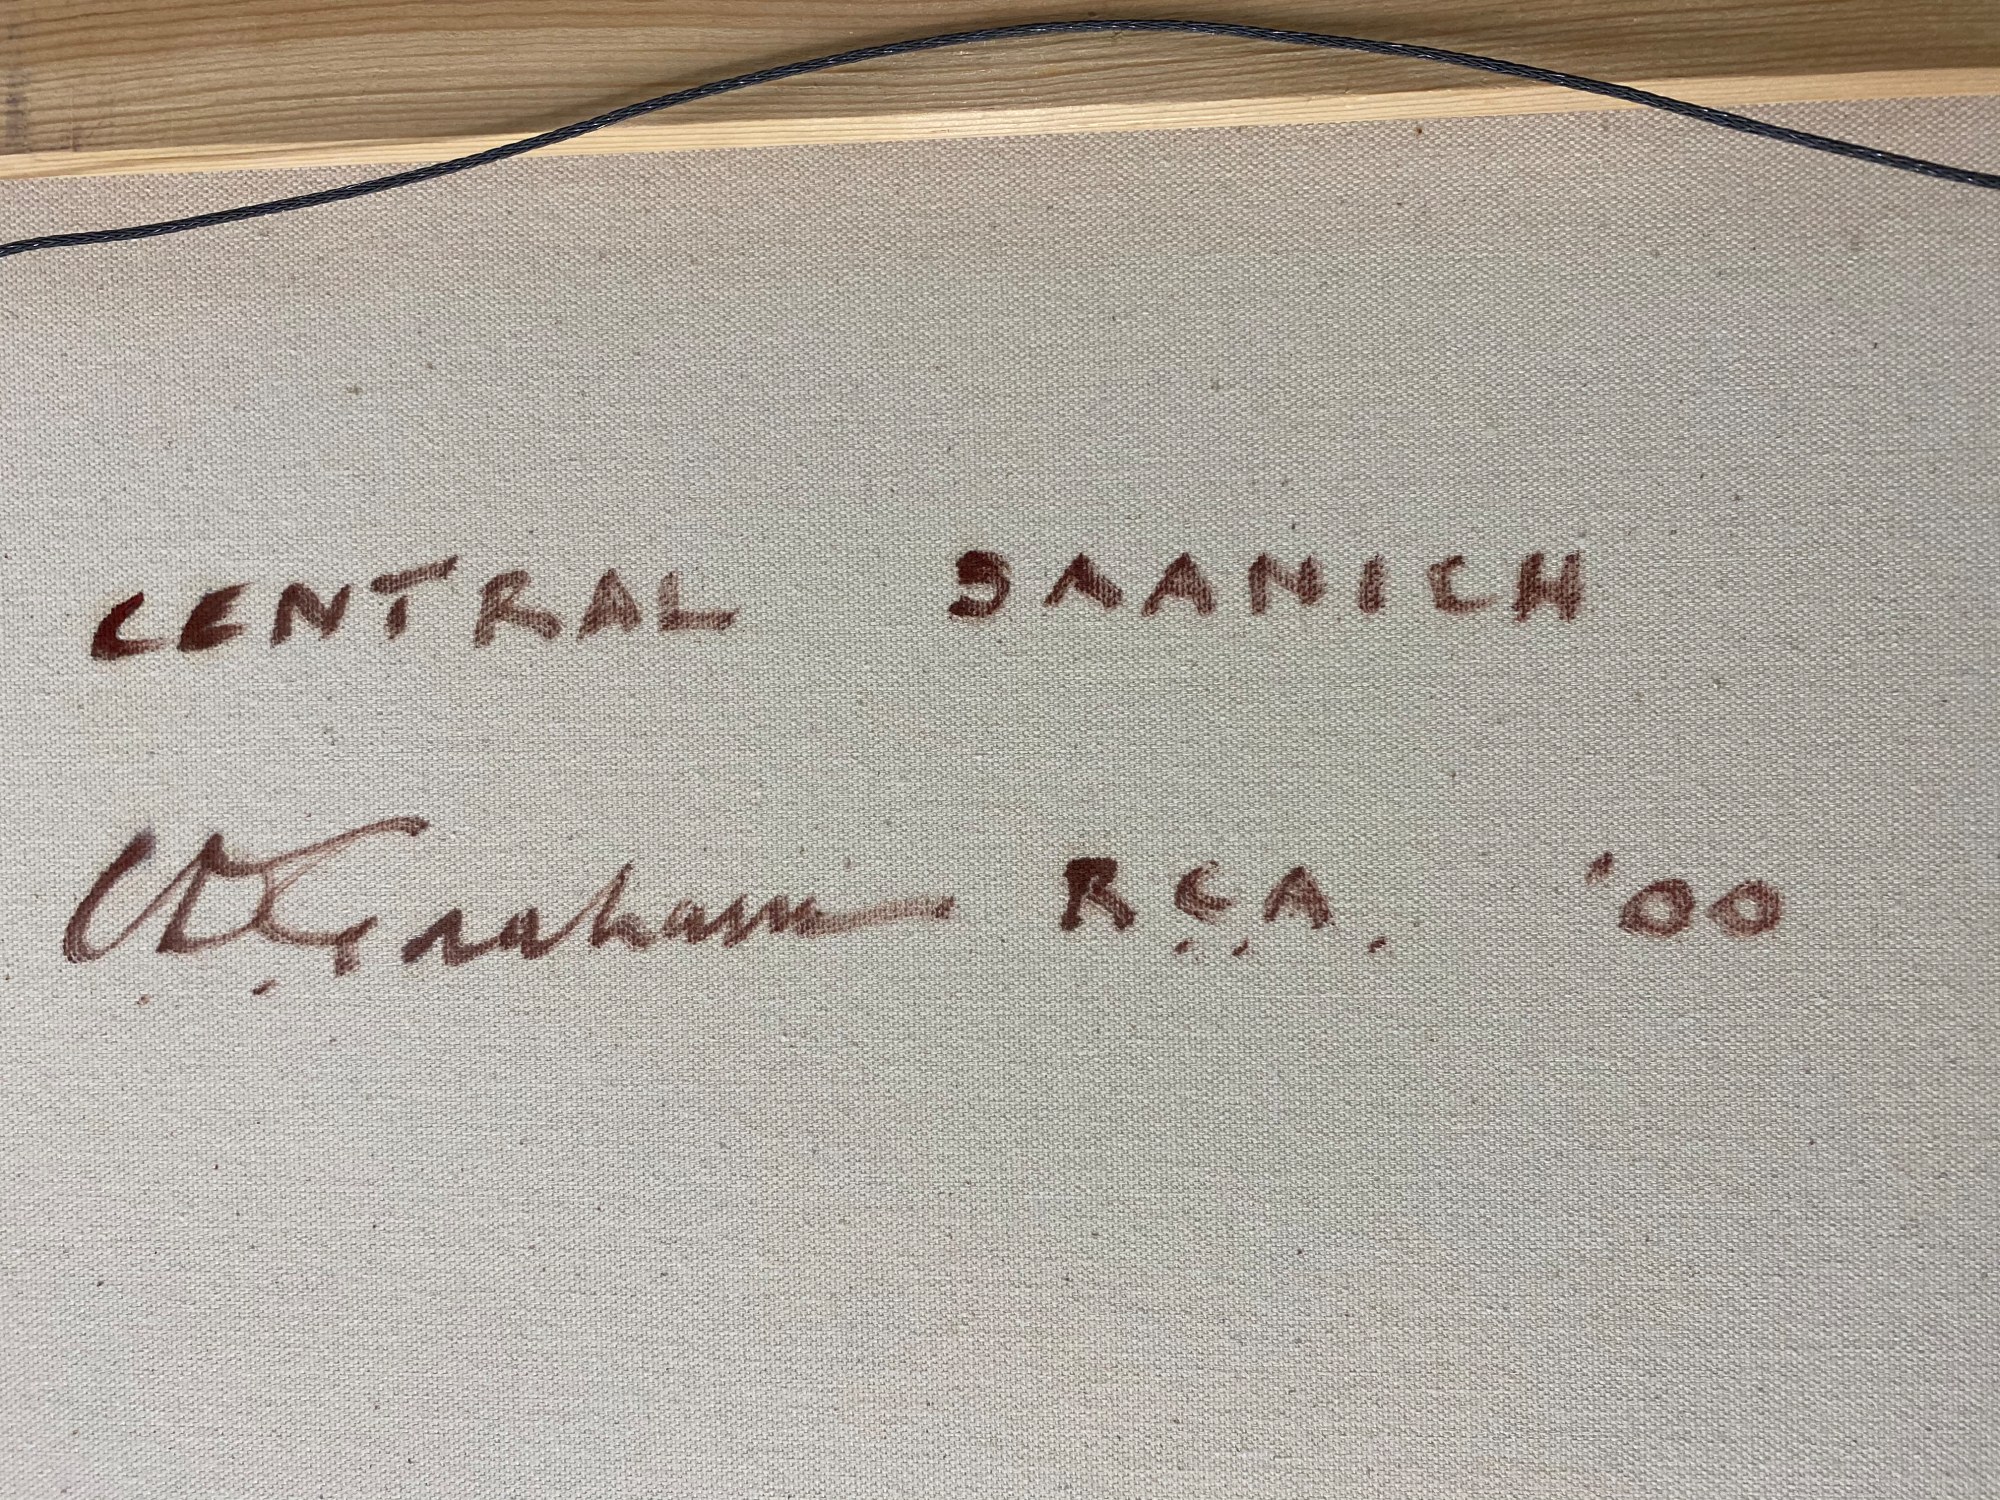 CENTRAL SAANICH
C.D. Graham R.C.A. '00